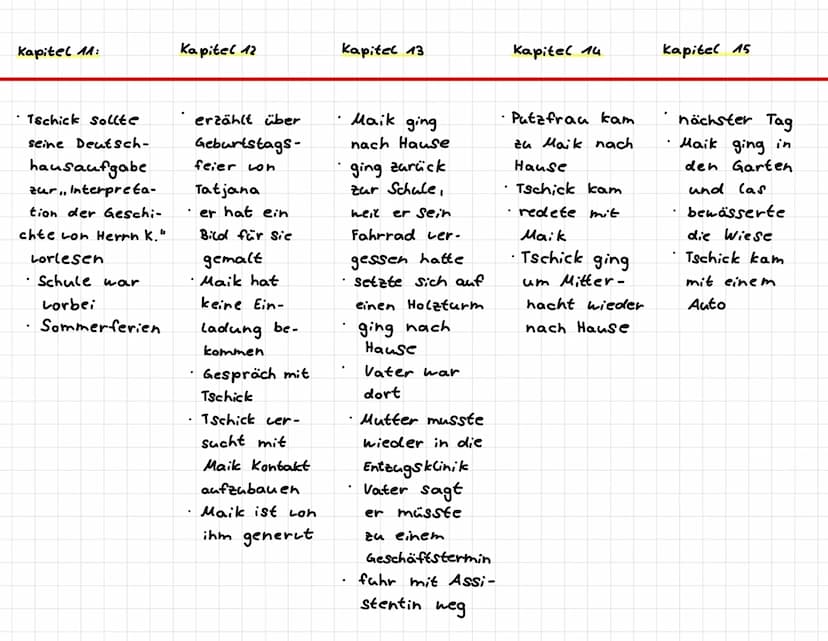 Kapitel 11:
Tschick sollte
seine Deutsch-
hausaufgabe
zur „Interpreta-
tion der Geschi-
chte von Herrn K."
vorlesen
· Schule war
vorbei
· Sommerferien
Kapitel 12
· erzählt über
Geburtstags-
feier von
Tatjana
· er hat ein
Bild für sie
gemalt
· Maik hat
keine Ein-
ladung be-
kommen
· Gespräch mit
Tschick
· Tschick ver-
sucht mit
Maik Kontakt
aufzubauen
· Maik ist von
ihm genervt
Kapitel 13
· Maik ging
nach Hause
· ging zurück
zur Schule,
weil er sein
Fahrrad ver-
gessen hatte
· setzte sich auf
einen Holzturm
· ging nach
Hause
· Vater war
dort
· Mutter musste
wieder in die
Entzugsklinik
· Vater sagt
er müsste
zu einem
Geschäftstermin
· fuhr mit Assi-
stentin weg
Kapitel 14
· Putzfrau kam
zu Maik nach
Hause
· Tschick kam
· redete mit
Maik
· Tschick ging
um Mitter-
nacht wieder
nach Hause
Kapitel 15
· nächster Tag
· Maik ging in
den Garten
und las
· bewässerte
die Wiese
· Tschick kam
mit einem
Auto